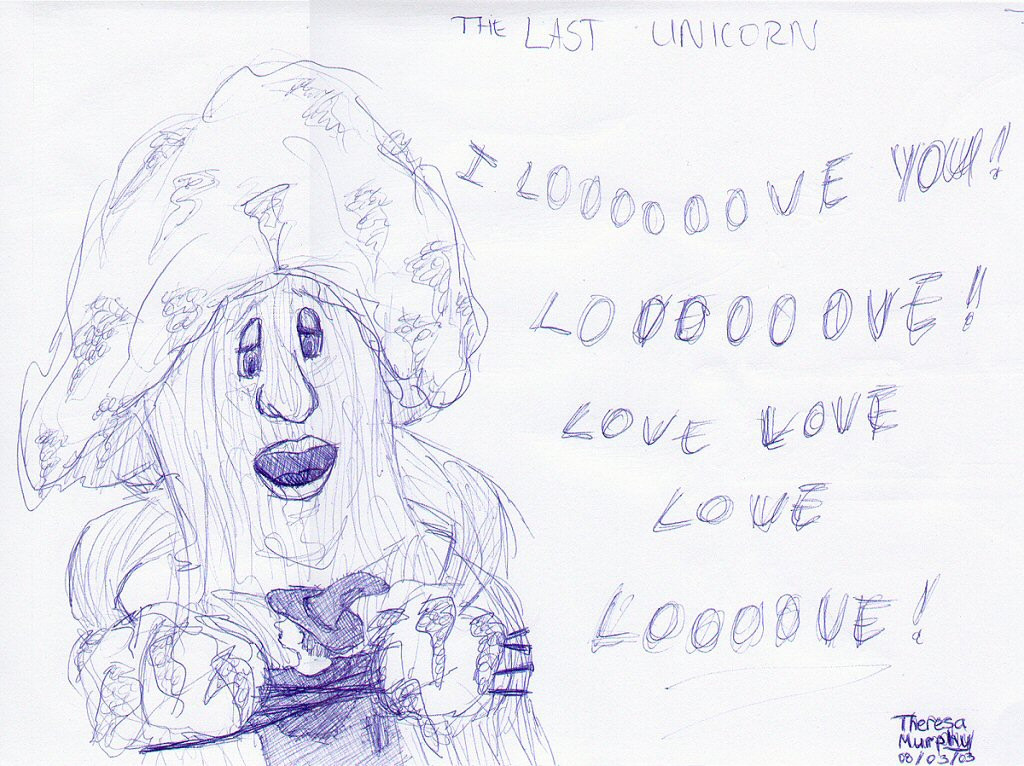 THE LAST UNICORN
I LOOOOOOVE YOU!
LOOOOOOVE!
LOVE LOVE
LOVE
LOOOOOVE!
Theresa
Murphy
08/03/03